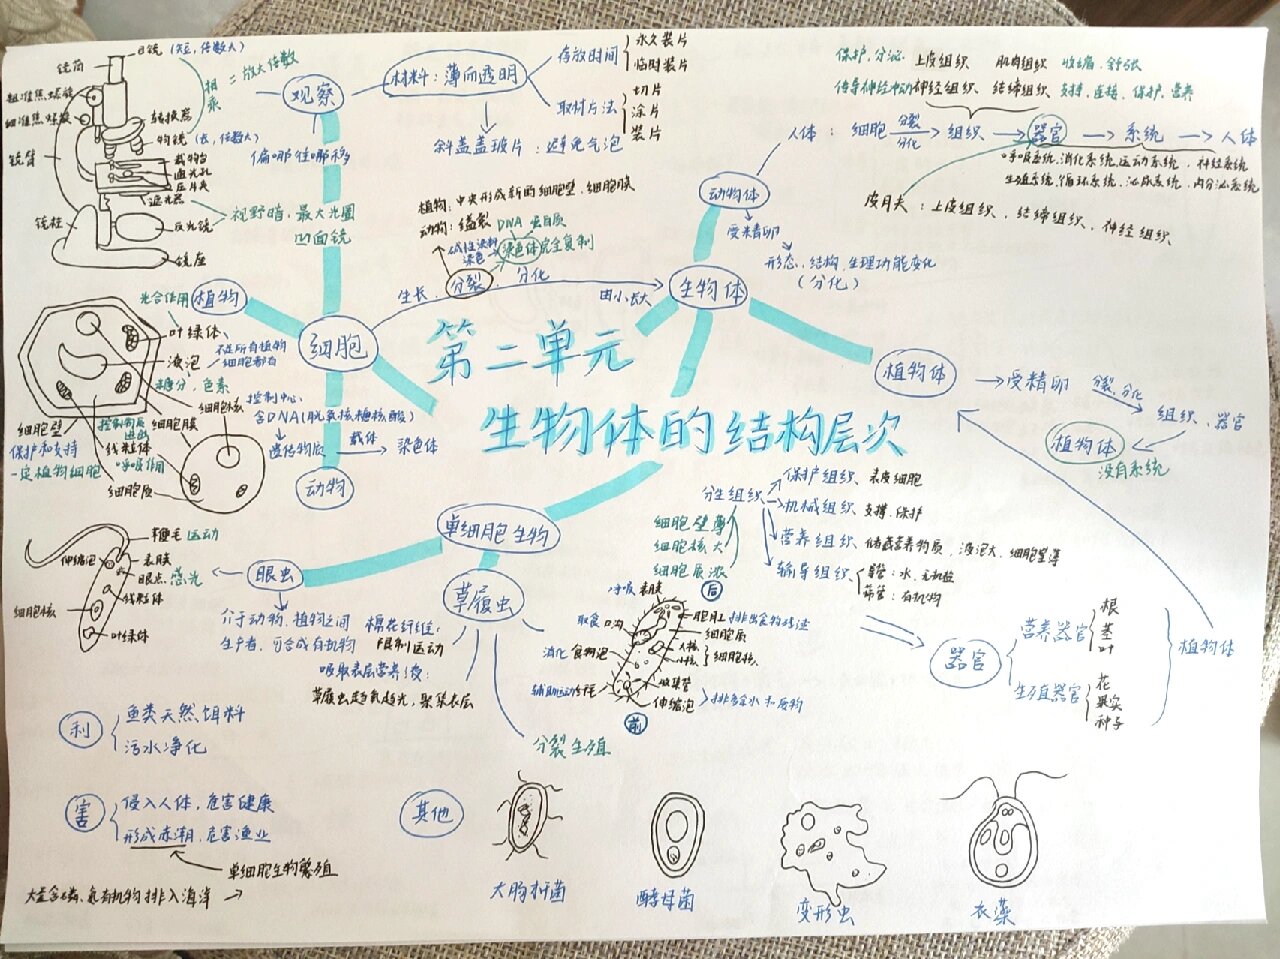 第二单元
生物体的结构层次
目镜 (短,倍数大)
镜筒
粗准焦螺旋
细准焦螺旋
转换器
物镜 (长,倍数大)
镜臂
载物台
通光孔
压片夹
遮光器
镜柱
反光镜
镜座
相乘 = 放大倍数
视野暗,最大光圈
凹面镜
观察
偏哪往哪移
材料:薄而透明
存放时间
永久装片
临时装片
取材方法
切片
涂片
装片
斜盖盖玻片:避免气泡
植物:中央形成新的细胞壁、细胞膜
动物:缢裂
DNA 蛋白质
碱性染料
染色
染色体完全复制
生长、分裂、分化
由小长大
细胞
植物
光合作用
叶绿体
液泡
不是所有植物
细胞都有
糖分、色素
细胞核
控制中心
含DNA(脱氧核糖核酸)
遗传物质
载体
染色体
细胞壁
保护和支持
一定植物细胞
控制物质
进出
细胞膜
线粒体
呼吸作用
细胞质
动物
生物体
动物体
受精卵
形态、结构、生理功能变化
(分化)
保护、分泌 上皮组织 肌肉组织 收缩、舒张
传导神经冲动 神经组织、结缔组织 支持、连接、保护、营养
人体:细胞
分裂
分化
组织
器官
系统
人体
呼吸系统、消化系统、运动系统、神经系统
生殖系统、循环系统、泌尿系统、内分泌系统
皮肤:上皮组织、结缔组织、神经组织
植物体
受精卵
分裂、分化
组织、器官
植物体
没有系统
分生组织
细胞壁薄
细胞核大
细胞质浓
保护组织 表皮细胞
机械组织 支撑、保护
营养组织 储藏营养物质,液泡大、细胞壁薄
输导组织
导管:水、无机盐
筛管:有机物
器官
营养器官
根
茎
叶
生殖器官
花
果实
种子
植物体
单细胞生物
眼虫
鞭毛 运动
伸缩泡
表膜
眼点 感光
线粒体
细胞核
叶绿体
介于动物、植物之间
生产者,可合成有机物
草履虫
棉花纤维:
限制运动
吸取表层营养液:
草履虫趋氧趋光,聚集表层
分裂生殖
后
呼吸 表膜
取食 口沟
消化 食物泡
胞肛 排出食物残渣
细胞质
大核
小核
细胞核
收集管
伸缩泡
排多余水和废物
前
利
鱼类天然饵料
污水净化
害
侵入人体,危害健康
形成赤潮,危害渔业
单细胞生物繁殖
大量含磷、氮有机物排入海洋
其他
大肠杆菌
酵母菌
变形虫
衣藻